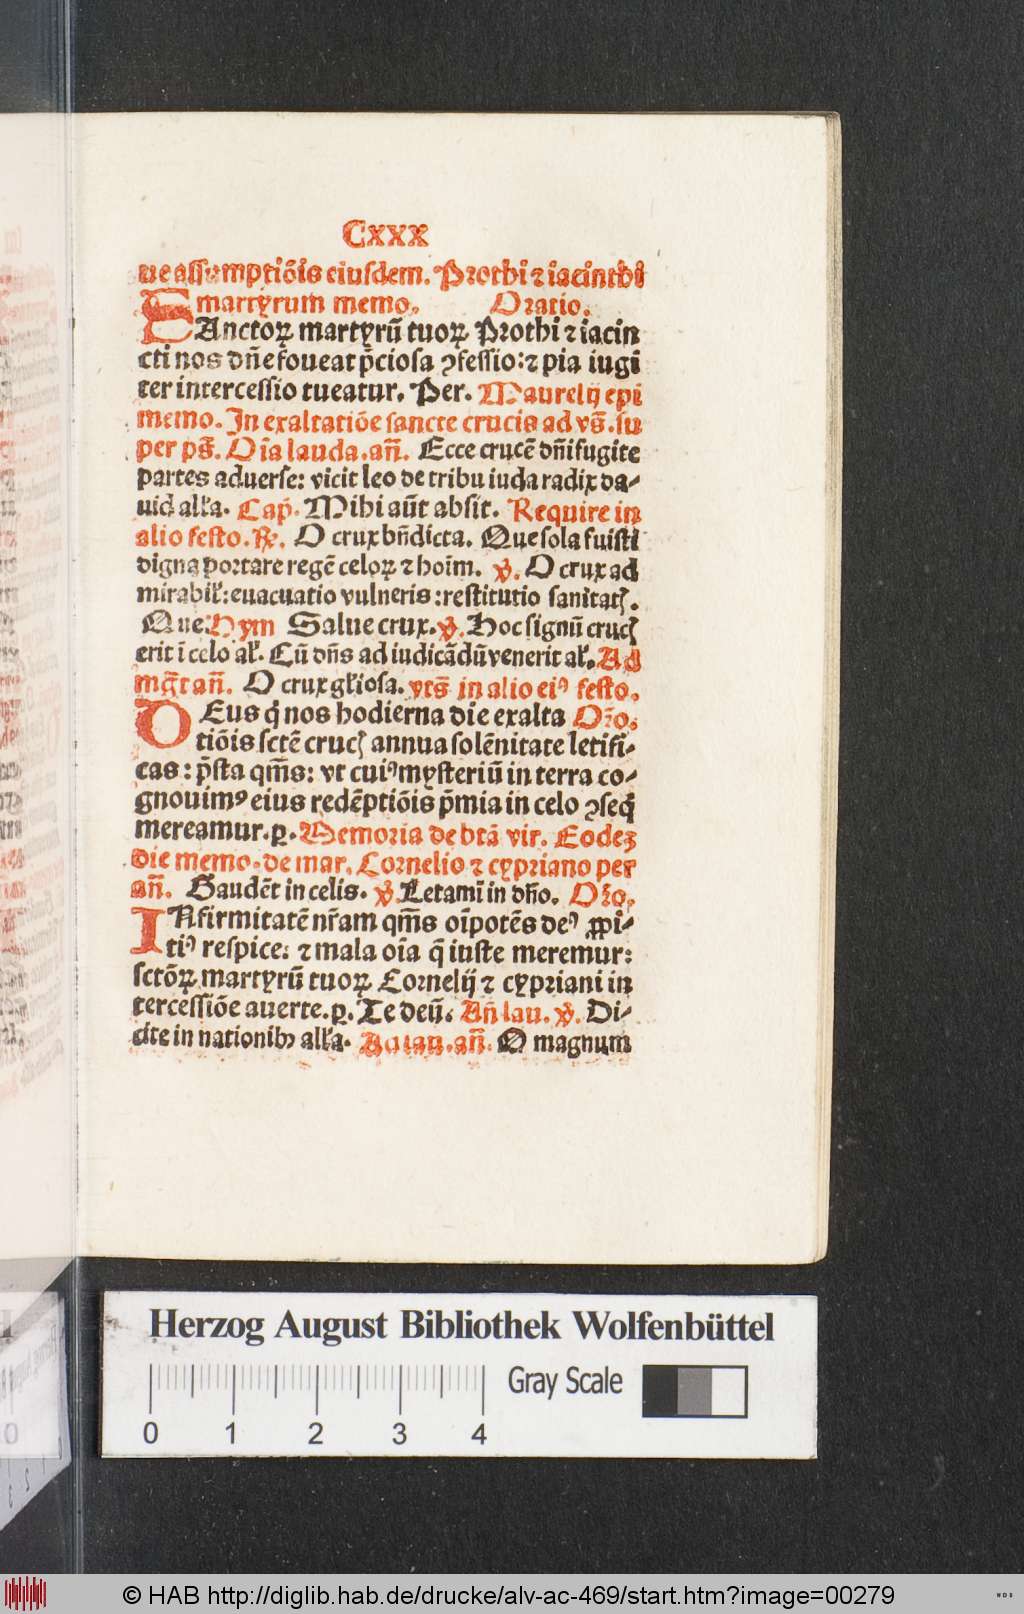 Cxxx
ue assumptiõis eiusdem. Prothi ⁊ iacinthi
martyrum memo. Oratio.
SAnctoꝝ martyrũ tuoꝝ Prothi ⁊ iacin
cti nos dñe foueat p̃ciosa ꝯfessio: ⁊ pia iugi
ter intercessio tueatur. Per. Maurelij epi
memo. In exaltatiõe sancte crucis ad vs̃. su
per ps̃. Oĩa lauda. añ. Ecce crucẽ dñi fugite
partes aduerse: vicit leo de tribu iuda radix da⸗
uid all'a. Cap̃. Mihi aũt absit. Require in
alio festo. ℟. O crux bñdicta. Que sola fuisti
digna portare regẽ celoꝝ ⁊ hoĩm. ℣. O crux ad
mirabil': euacuatio vulneris: restitutio sanitatꝭ.
Que. Hym Salue crux. ℣. Hoc signũ crucꝭ
erit ĩ celo al'. Cũ dñs ad iudicãdũ venerit al'. Ad
mg̃t añ. O crux gl'iosa. vts̃ in alio eiꝰ festo.
DEus q̃ nos hodierna die exalta Or̃o.
tiõis sctẽ crucꝭ annua solẽnitate letifi⸗
cas: p̃sta qm̃s: vt cuiꝰ mysteriũ in terra co⸗
gnouimꝰ eius redẽptiõis p̃mia in celo ꝯseq̃
mereamur. ꝑ. Memoria de btã vir. Eodeꝫ
die memo. de mar. Cornelio ⁊ cypriano per
añ. Gaudẽt in celis. ℣. Letamĩ in dño. Or̃o.
INfirmitatẽ nr̃am qm̃s oĩpotẽs deꝰ ꝓpi⸗
tiꝰ respice: ⁊ mala oĩa q̃ iuste meremur:
sctõꝝ martyrũ tuoꝝ Cornelij ⁊ cypriani in
tercessiõe auerte. ꝑ. Te deũ. Añ lau. ℣. Di⸗
cite in nationibꝰ all'a. Ad lau. añ. O magnum
Herzog August Bibliothek Wolfenbüttel
Gray Scale
0 1 2 3 4
© HAB http://diglib.hab.de/drucke/alv-ac-469/start.htm?image=00279